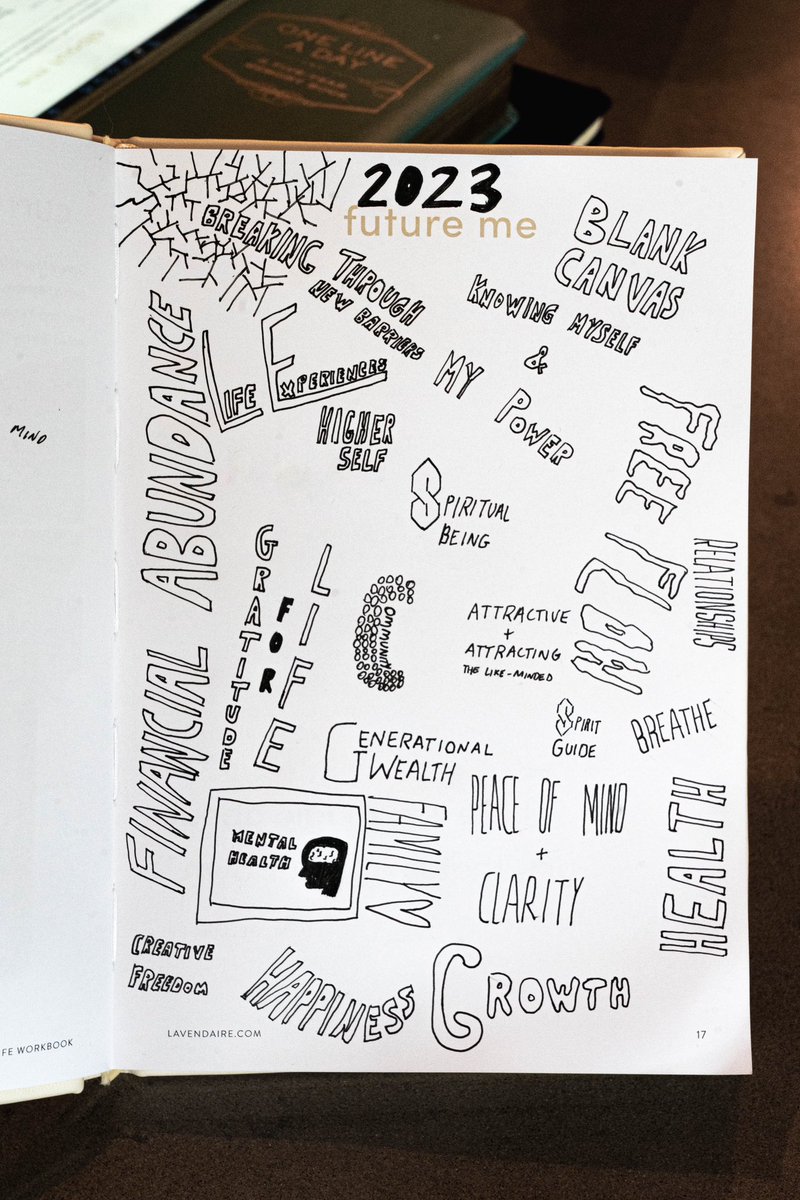 ONE LINE
A DAY
2023
future me
BREAKING THROUGH
NEW BARRIERS
BLANK
CANVAS
KNOWING MYSELF
&
MY POWER
LIFE EXPERIENCES
HIGHER
SELF
FINANCIAL ABUNDANCE
FREE FLOW
SPIRITUAL
BEING
MIND
GRATITUDE
FOR
LIFE
COMMUNITY
ATTRACTIVE
+
ATTRACTING
THE LIKE-MINDED
RELATIONSHIPS
SPIRIT
GUIDE
BREATHE
GENERATIONAL
WEALTH
PEACE OF MIND
+
CLARITY
MENTAL
HEALTH
FAMILY
HEALTH
CREATIVE
FREEDOM
HAPPINESS
GROWTH
FE WORKBOOK
LAVENDAIRE.COM
17